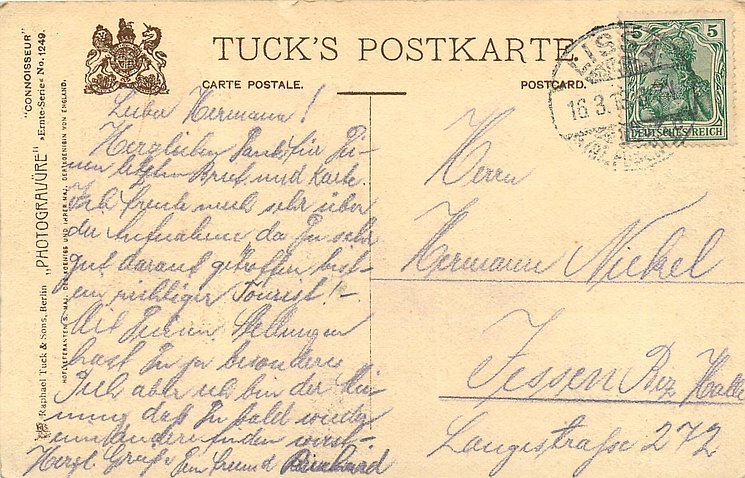 TUCK'S POSTKARTE.
CARTE POSTALE.
POSTCARD.
"CONNOISSEUR"
»Ernte-Serie« No. 1249.
„PHOTOGRAVÜRE"
Raphael Tuck & Sons, Berlin
HOFLIEFERANTEN S. MAJ. DES KOENIGS UND IHRER MAJ. DER KOENIGIN VON ENGLAND.
5
5
DEUTSCHES REICH
LISSA
16.3.
Lieber Hermann!
Herzlichen Dank für Dei-
nen letzten Brief und Karte.
Ich freute mich sehr über
die Aufnahme, da Du sehr
gut darauf getroffen bist
ein richtiger Tourist!-
Mit Deinen Stellungen
hast Du ja besonders
Pech aber ich bin der Mei-
nung daß Du bald wieder
eine andere finden wirst-
Herzl. Grüße Dein Freund Reinhard
Herrn
Hermann Nickel
Jessen Bez Halle
Langestraße 272